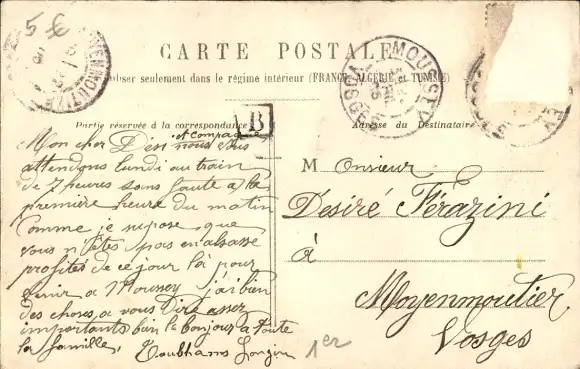 5 f
CARTE POSTALE
à utiliser seulement dans le régime intérieur (FRANCE, ALGÉRIE et TUNISIE)
MOUSSEY
VOSGES
MOYENMOUTIER
Partie réservée à la correspondance
B
Adresse du Destinataire
et Compagnie
Mon cher Desi nous vous
attendons lundi au train
de 7 heures sans faute a la
première heure du matin
Comme je supose que
vous n'êtes pas en alsasse
profités de ce jour là pour
venir a Moussey j'ai bien
des choses a vous dire assez
importants bien le bonjour a toute
la famille,
1er
M onsieur
Desiré Férazini
à
Moyenmoutier
Vosges